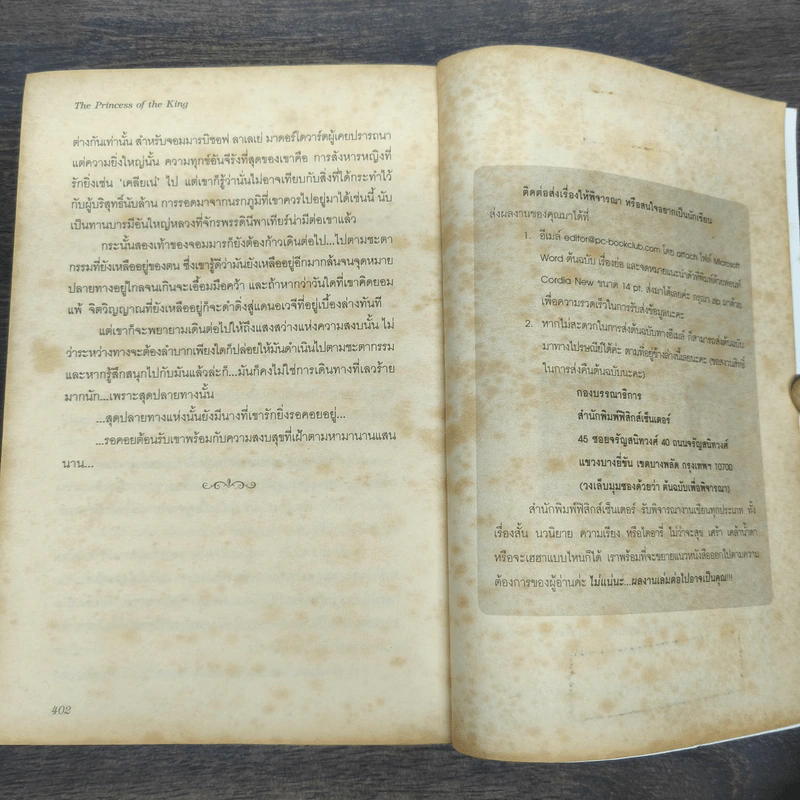 The Princess of the King
ต่างกันเท่านั้น สำหรับจอมมารบิชอฟ ลาเลเย่ มาดอร์โดวาร์ตผู้เคยปรารถนา
แต่ความยิ่งใหญ่นั้น ความทุกข์อันจีรังที่สุดของเขาคือ การสังหารหญิงที่
รักยิ่งเช่น 'เคลียเน่' ไป แต่เขาก็รู้ว่านั่นไม่อาจเทียบกับสิ่งที่ได้กระทำไว้
กับผู้บริสุทธิ์นับล้าน การรอดมาจากนรกภูมิที่เขาควรไปอยู่มาได้เช่นนี้ นับ
เป็นทานบารมีอันใหญ่หลวงที่จักรพรรดินีพาเทียร์น่ามีต่อเขาแล้ว
กระนั้นสองเท้าของจอมมารก็ยังต้องก้าวเดินต่อไป...ไปตามชะตา
กรรมที่ยังเหลืออยู่ของตน ซึ่งเขารู้ดีว่ามันยังเหลืออยู่อีกมากล้นจนจุดหมาย
ปลายทางอยู่ไกลจนเกินจะเอื้อมมือคว้า และถ้าหากว่าวันใดที่เขาคิดยอม
แพ้ จิตวิญญาณที่ยังเหลืออยู่ก็จะดำดิ่งสู่แดนอเวจีที่อยู่เบื้องล่างทันที
แต่เขาก็จะพยายามเดินต่อไปให้ถึงแสงสว่างแห่งความสงบนั้น ไม่
ว่าระหว่างทางจะต้องลำบากเพียงใดก็ปล่อยให้มันดำเนินไปตามชะตากรรม
และหากรู้สึกสนุกไปกับมันแล้วล่ะก็...มันก็คงไม่ใช่การเดินทางที่เลวร้าย
มากนัก...เพราะสุดปลายทางนั้น
...สุดปลายทางแห่งนั้นยังมีนางที่เขารักยิ่งรอคอยอยู่...
...รอคอยต้อนรับเขาพร้อมกับความสงบสุขที่เฝ้าตามหามานานแสน
นาน...
402
ติดต่อส่งเรื่องให้พิจารณา หรือสนใจอยากเป็นนักเขียน
ส่งผลงานของคุณมาได้ที่
1. อีเมล์ editor@pc-bookclub.com โดย attach ไฟล์ Microsoft
Word ต้นฉบับ เรื่องย่อ และจดหมายแนะนำตัวที่พิมพ์ด้วยฟอนต์
Cordia New ขนาด 14 pt. ส่งมาได้เลยค่ะ กรุณา zip มาด้วย
เพื่อความรวดเร็วในการรับส่งข้อมูลนะคะ
2. หากไม่สะดวกในการส่งต้นฉบับทางอีเมล์ ก็สามารถส่งต้นฉบับ
มาทางไปรษณีย์ได้ค่ะ ตามที่อยู่ข้างล่างนี้เลยนะคะ (ขอสงวนสิทธิ์
ในการส่งคืนต้นฉบับนะคะ)
กองบรรณาธิการ
สำนักพิมพ์ฟิสิกส์เซ็นเตอร์
45 ซอยจรัญสนิทวงศ์ 40 ถนนจรัญสนิทวงศ์
แขวงบางยี่ขัน เขตบางพลัด กรุงเทพฯ 10700
(วงเล็บมุมซองด้วยว่า ต้นฉบับเพื่อพิจารณา)
สำนักพิมพ์ฟิสิกส์เซ็นเตอร์ รับพิจารณางานเขียนทุกประเภท ทั้ง
เรื่องสั้น นวนิยาย ความเรียง หรือไดอารี่ ไม่ว่าจะสุข เศร้า เคล้าน้ำตา
หรือจะเฮฮาแบบไหนก็ได้ เราพร้อมที่จะขยายแนวหนังสือออกไปตามความ
ต้องการของผู้อ่านค่ะ ไม่แน่นะ...ผลงานเล่มต่อไปอาจเป็นคุณ!!!